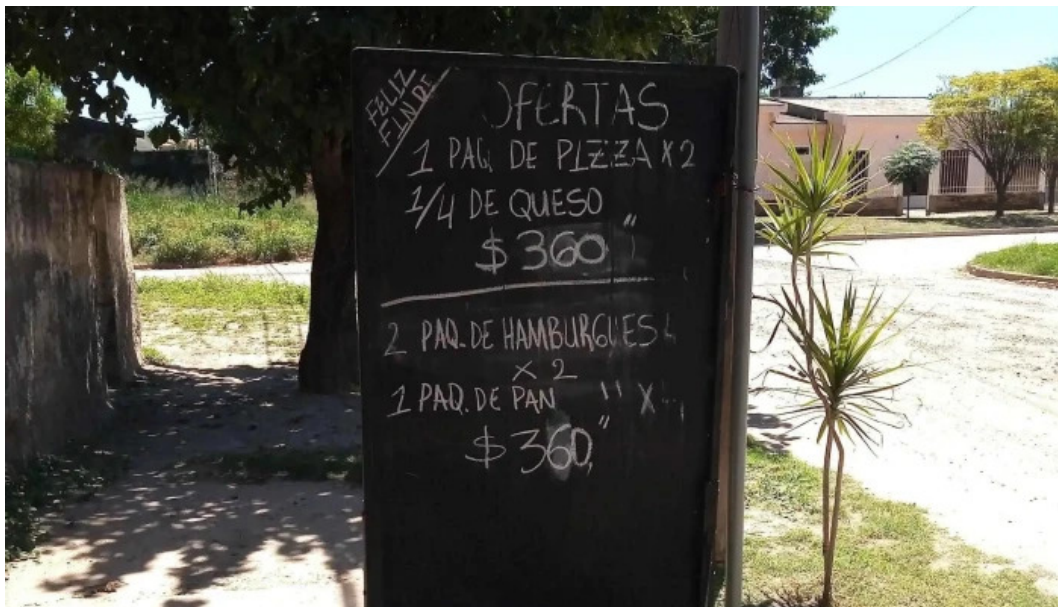 FELIZ
FINDE
OFERTAS
1 PAQ. DE PIZZA X 2
1/4 DE QUESO
$ 360 "
2 PAQ. DE HAMBURGUES
X 2
1 PAQ. DE PAN " X
$ 360, "